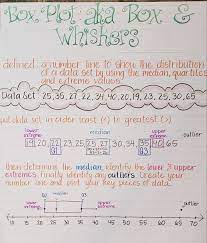 Box Plot aka Box &
Whiskers
defined: a number line to show the distribution
of a data set by using the median, quartiles
and extreme values.
Data Set 25, 35, 27, 22, 34, 40, 20, 19, 23, 25, 30, 65
put data set in order least (<) to greatest (>)
lower extreme median upper extreme outlier
19 20 22 23 25 25 27 30 34 35 40 65
Q1 Q3
then determine the median, identify the lower & upper
extremes. Finally identify any outliers. Create your
number line and plot your key pieces of data.
Q1 Q3
10 15 20 25 30 35 40 45 50 55 60 65 70